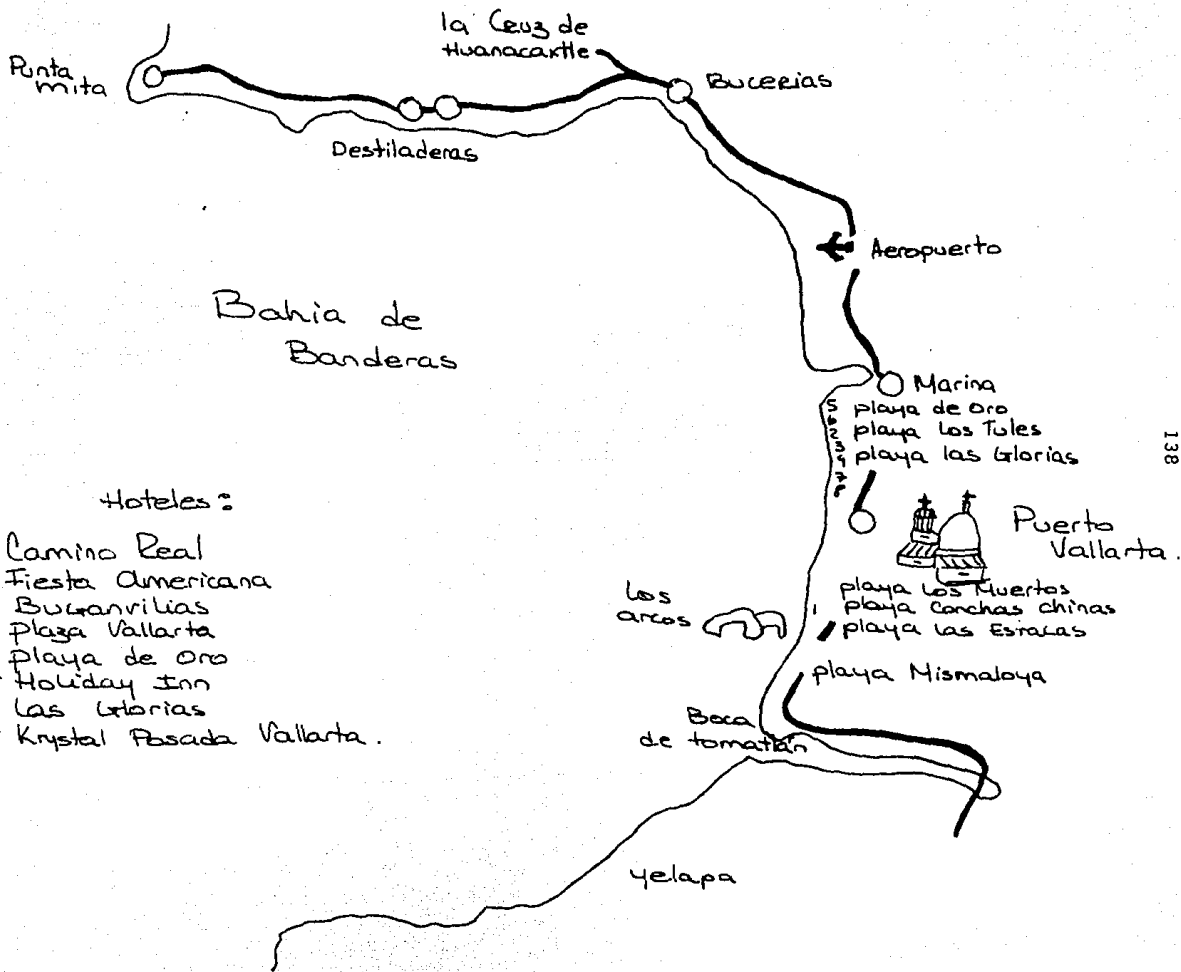 la Cruz de
Huanacaxtle
Punta
mita
Bucerias
Destiladeras
Aeropuerto
Bahia de
Banderas
Marina
playa de Oro
playa Los Tules
playa las Glorias
138
Puerto
Vallarta.
Hoteles:
Camino Real
Fiesta Americana
Buganvilias
plaza Vallarta
playa de oro
Holiday Inn
Las Glorias
Krystal Posada Vallarta.
Los
arcos
playa Los Muertos
playa Conchas chinas
playa las Estacas
playa Mismaloya
Boca
de tomatlán
yelapa